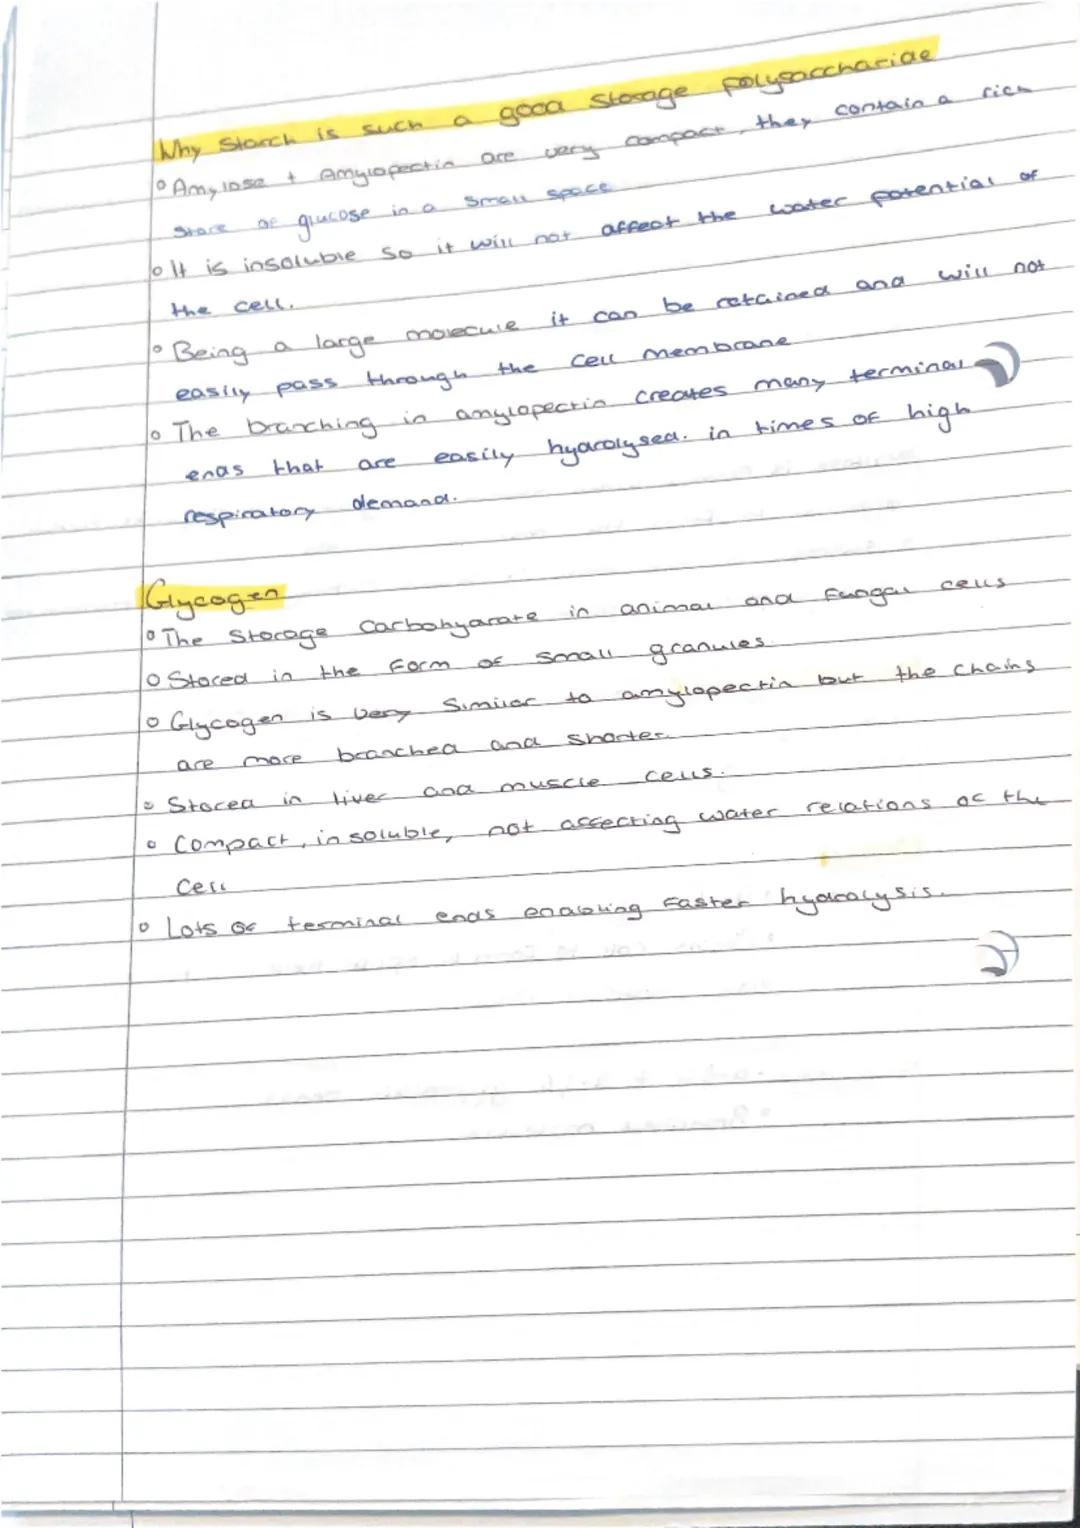 Why Starch is such a good storage polysaccharide
Amylose + Amylopectin are very compact, they contain a rich
store of glucose in a small space
It is insoluble so it will not affect the water potential of
the cell.
Being a large molecule it can be retained and will not
easily pass through the cell membrane
The branching in amylopectin creates many terminal
ends that are easily hydrolysed. in times of high
respiratory demand.
Glycogen
The Storage Carbohydrate in animal and fungal cells
Stored in the form of small granules.
Glycogen is very similar to amylopectin but the chains
are more branched and shorter.
Stored in liver and muscle cells.
Compact, insoluble, not affecting water relations of the
Cell
Lots of terminal ends enabling faster hydrolysis.